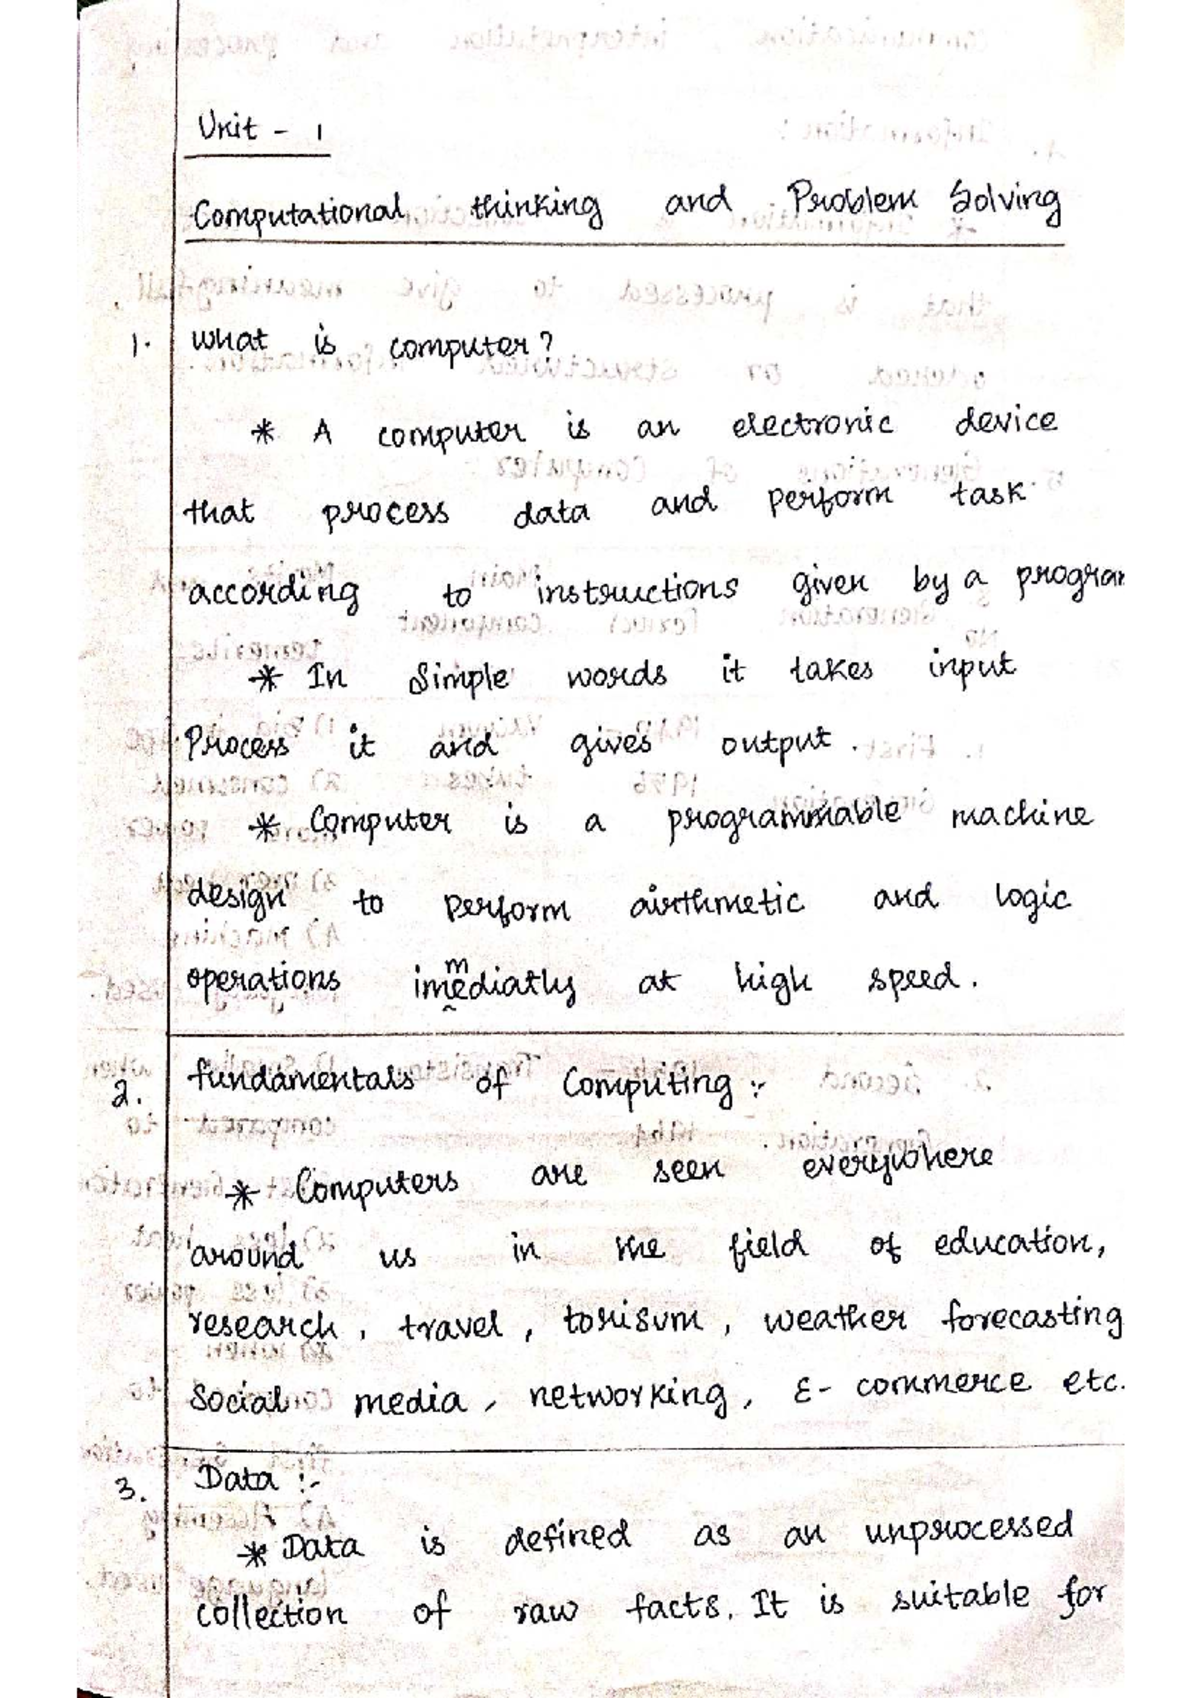 Unit - 1
Computational thinking and Problem Solving
1. what is computer?
* A computer is an electronic device
that process data and perform task
according to instructions given by a program
* In Simple words it takes input
Process it and gives output.
* Computer is a programmable machine
design to perform airthmetic and logic
operations immediatly at high speed.
2. fundamentals of Computing :-
* Computers are seen everywhere
around us in the field of education,
research, travel, torisum, weather forecasting
Social media, networking, E-commerce etc.
3. Data :-
* Data is defined as an unprocessed
collection of raw facts. It is suitable for